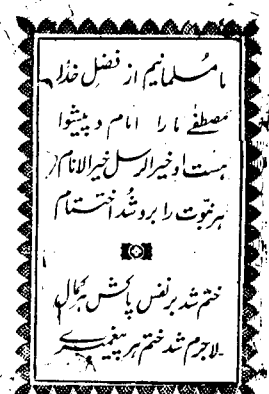 ما مسلمانیم از فضل خدا
مصطفےٰ ما را امام و پیشوا
ہست او خیر الرسل خیر الانام
ہر نبوت را برو شد اختتام
ختم شد بر نفس پاکش ہر کمال
لاجرم شد ختم ہر پیغمبرے